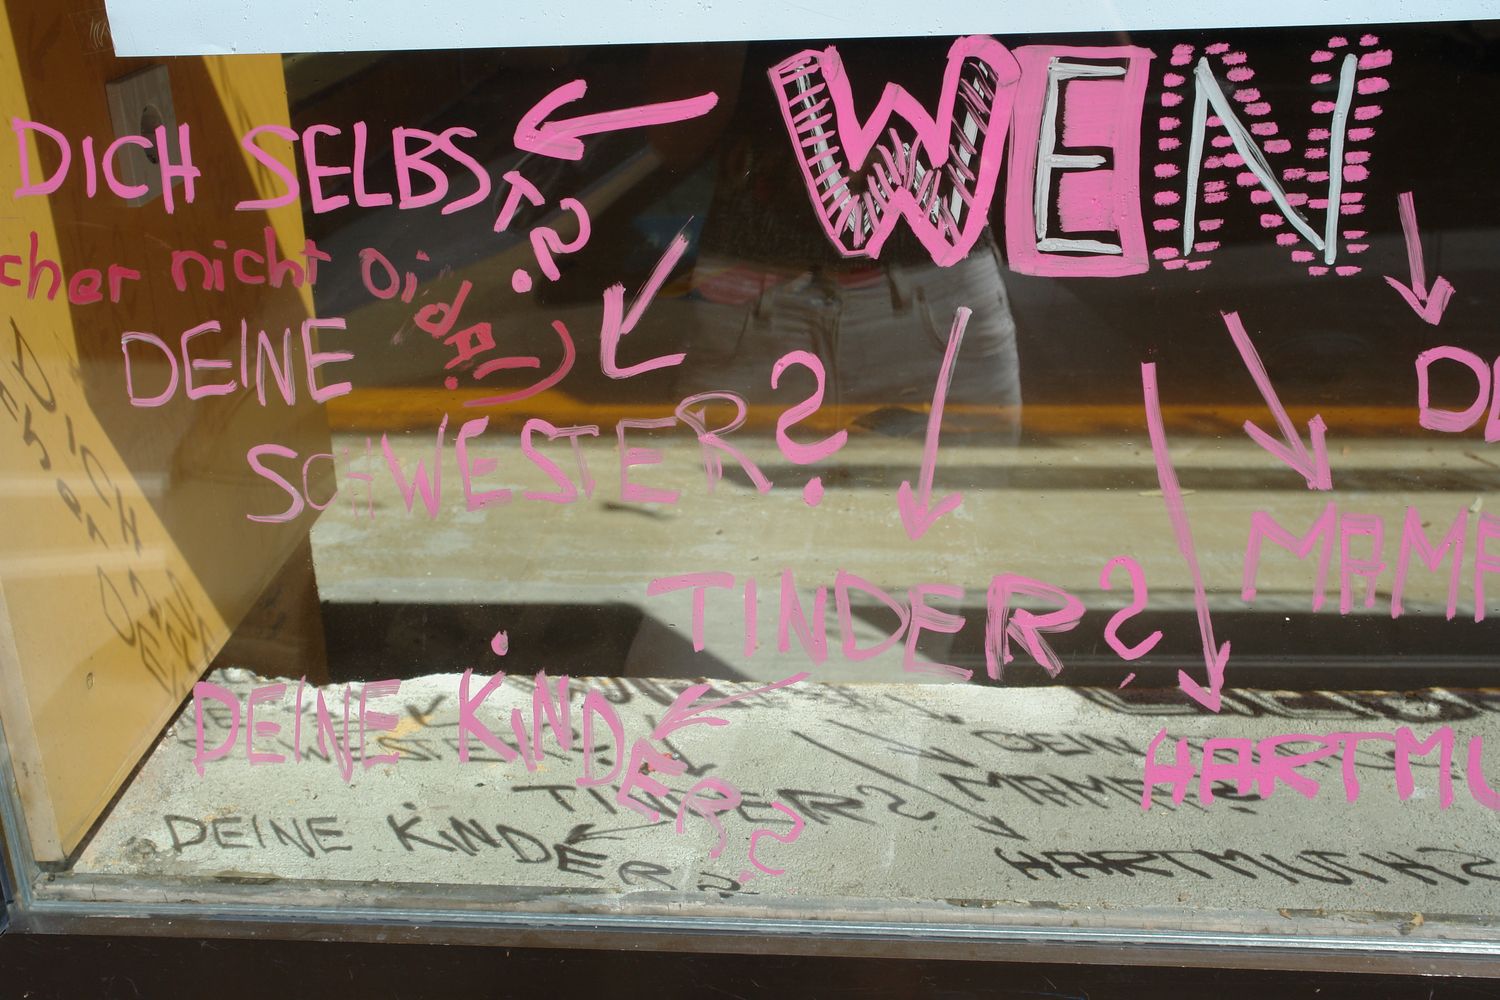 WEN
DICH SELBST?
cher nicht
DEINE
SCHWESTER?
TINDER?
MAMA
DEINE KINDER?
HARTMU